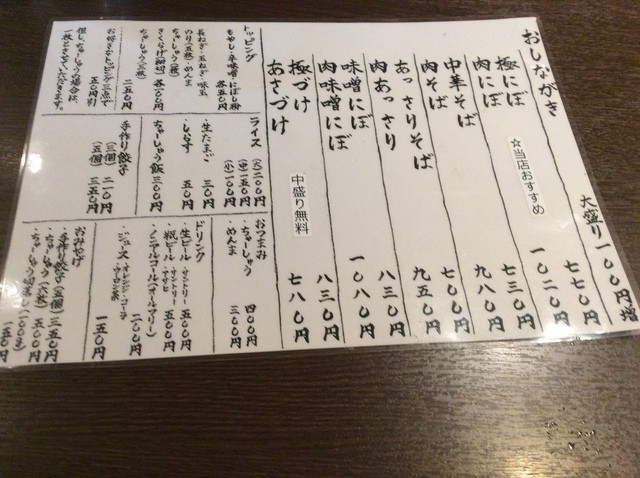 おしながき
大盛り一〇〇円増
極にぼ 七七〇円
肉にぼ 一〇二〇円
☆当店おすすめ
中華そば 七三〇円
肉そば 九八〇円
あっさりそば 七〇〇円
肉あっさり 九五〇円
味噌にぼ 八三〇円
肉味噌にぼ 一〇八〇円
極づけ 八三〇円
あさづけ 七八〇円
中盛り無料
トッピング
もやし・辛味噌・にぼし粉 各五〇円
長ねぎ・玉ねぎ・味玉
のり(五枚)・めんま
ちゃーしゅう(一枚)
きくらげ(細切) 各一〇〇円
ちゃーしゅう(三枚) 二五〇円
お好きなトッピング三点で
五〇円引
但し、ちゃーしゅうの場合は、
一枚とさせていただきます。
ライス (大)二〇〇円
(中)一五〇円
(小)一〇〇円
・生たまご 三〇円
・しらす 五〇円
・ちゃーしゅう飯 三〇〇円
手作り餃子
(三個) 二一〇円
(五個) 三五〇円
おつまみ
・ちゃーしゅう 四〇〇円
・めんま 三〇〇円
ドリンク
・生ビール・サントリー 五〇〇円
・瓶ビール・サントリー・アサヒ 五〇〇円
・ノンアルコール(オールフリー)
二〇〇円
・ジュース
一五〇円
おみやげ
・手作り餃子(五個) 三五〇円
・ちゃーしゅう(六枚) 五〇〇円
五〇円